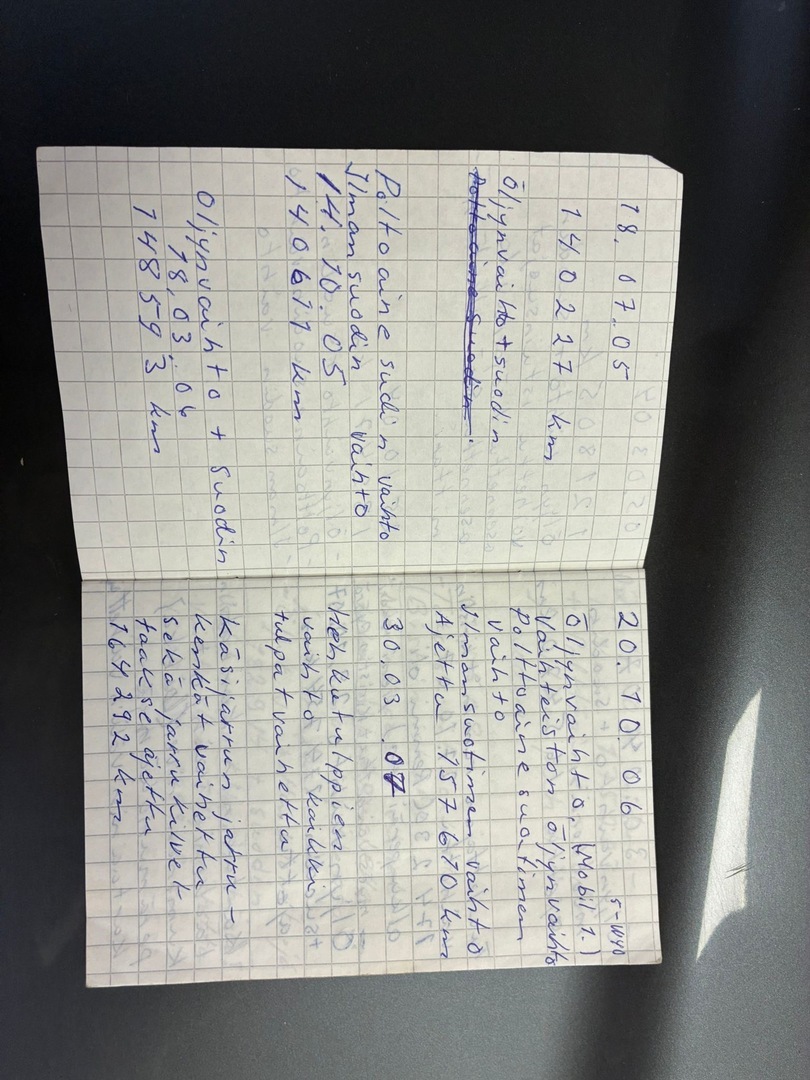 18.07.05
140227 km
Öljynvaihto + suodin
Polttoaine suodin.
Poltoaine sudin vaihto
Ilman suodin vaihto
14.10.05
140611 km
Oljynvaihto + suodin
18.03.06
148593 km
20.10.06
5-W40
Öljynvaihto. (Mobil 1.)
Vaihteiston öljynvaihto
polttoaine suotimen
vaihto
Ilmansuotimen vaihto
Ajettu 157610 km
30.03.07
Hehkutulppien
vaihto kaikki
tulpat vaihettu
Käsijarrun jarru-
kenkät vaihettu
Sekä jarrukilvek
taakse ajettu
164292 km